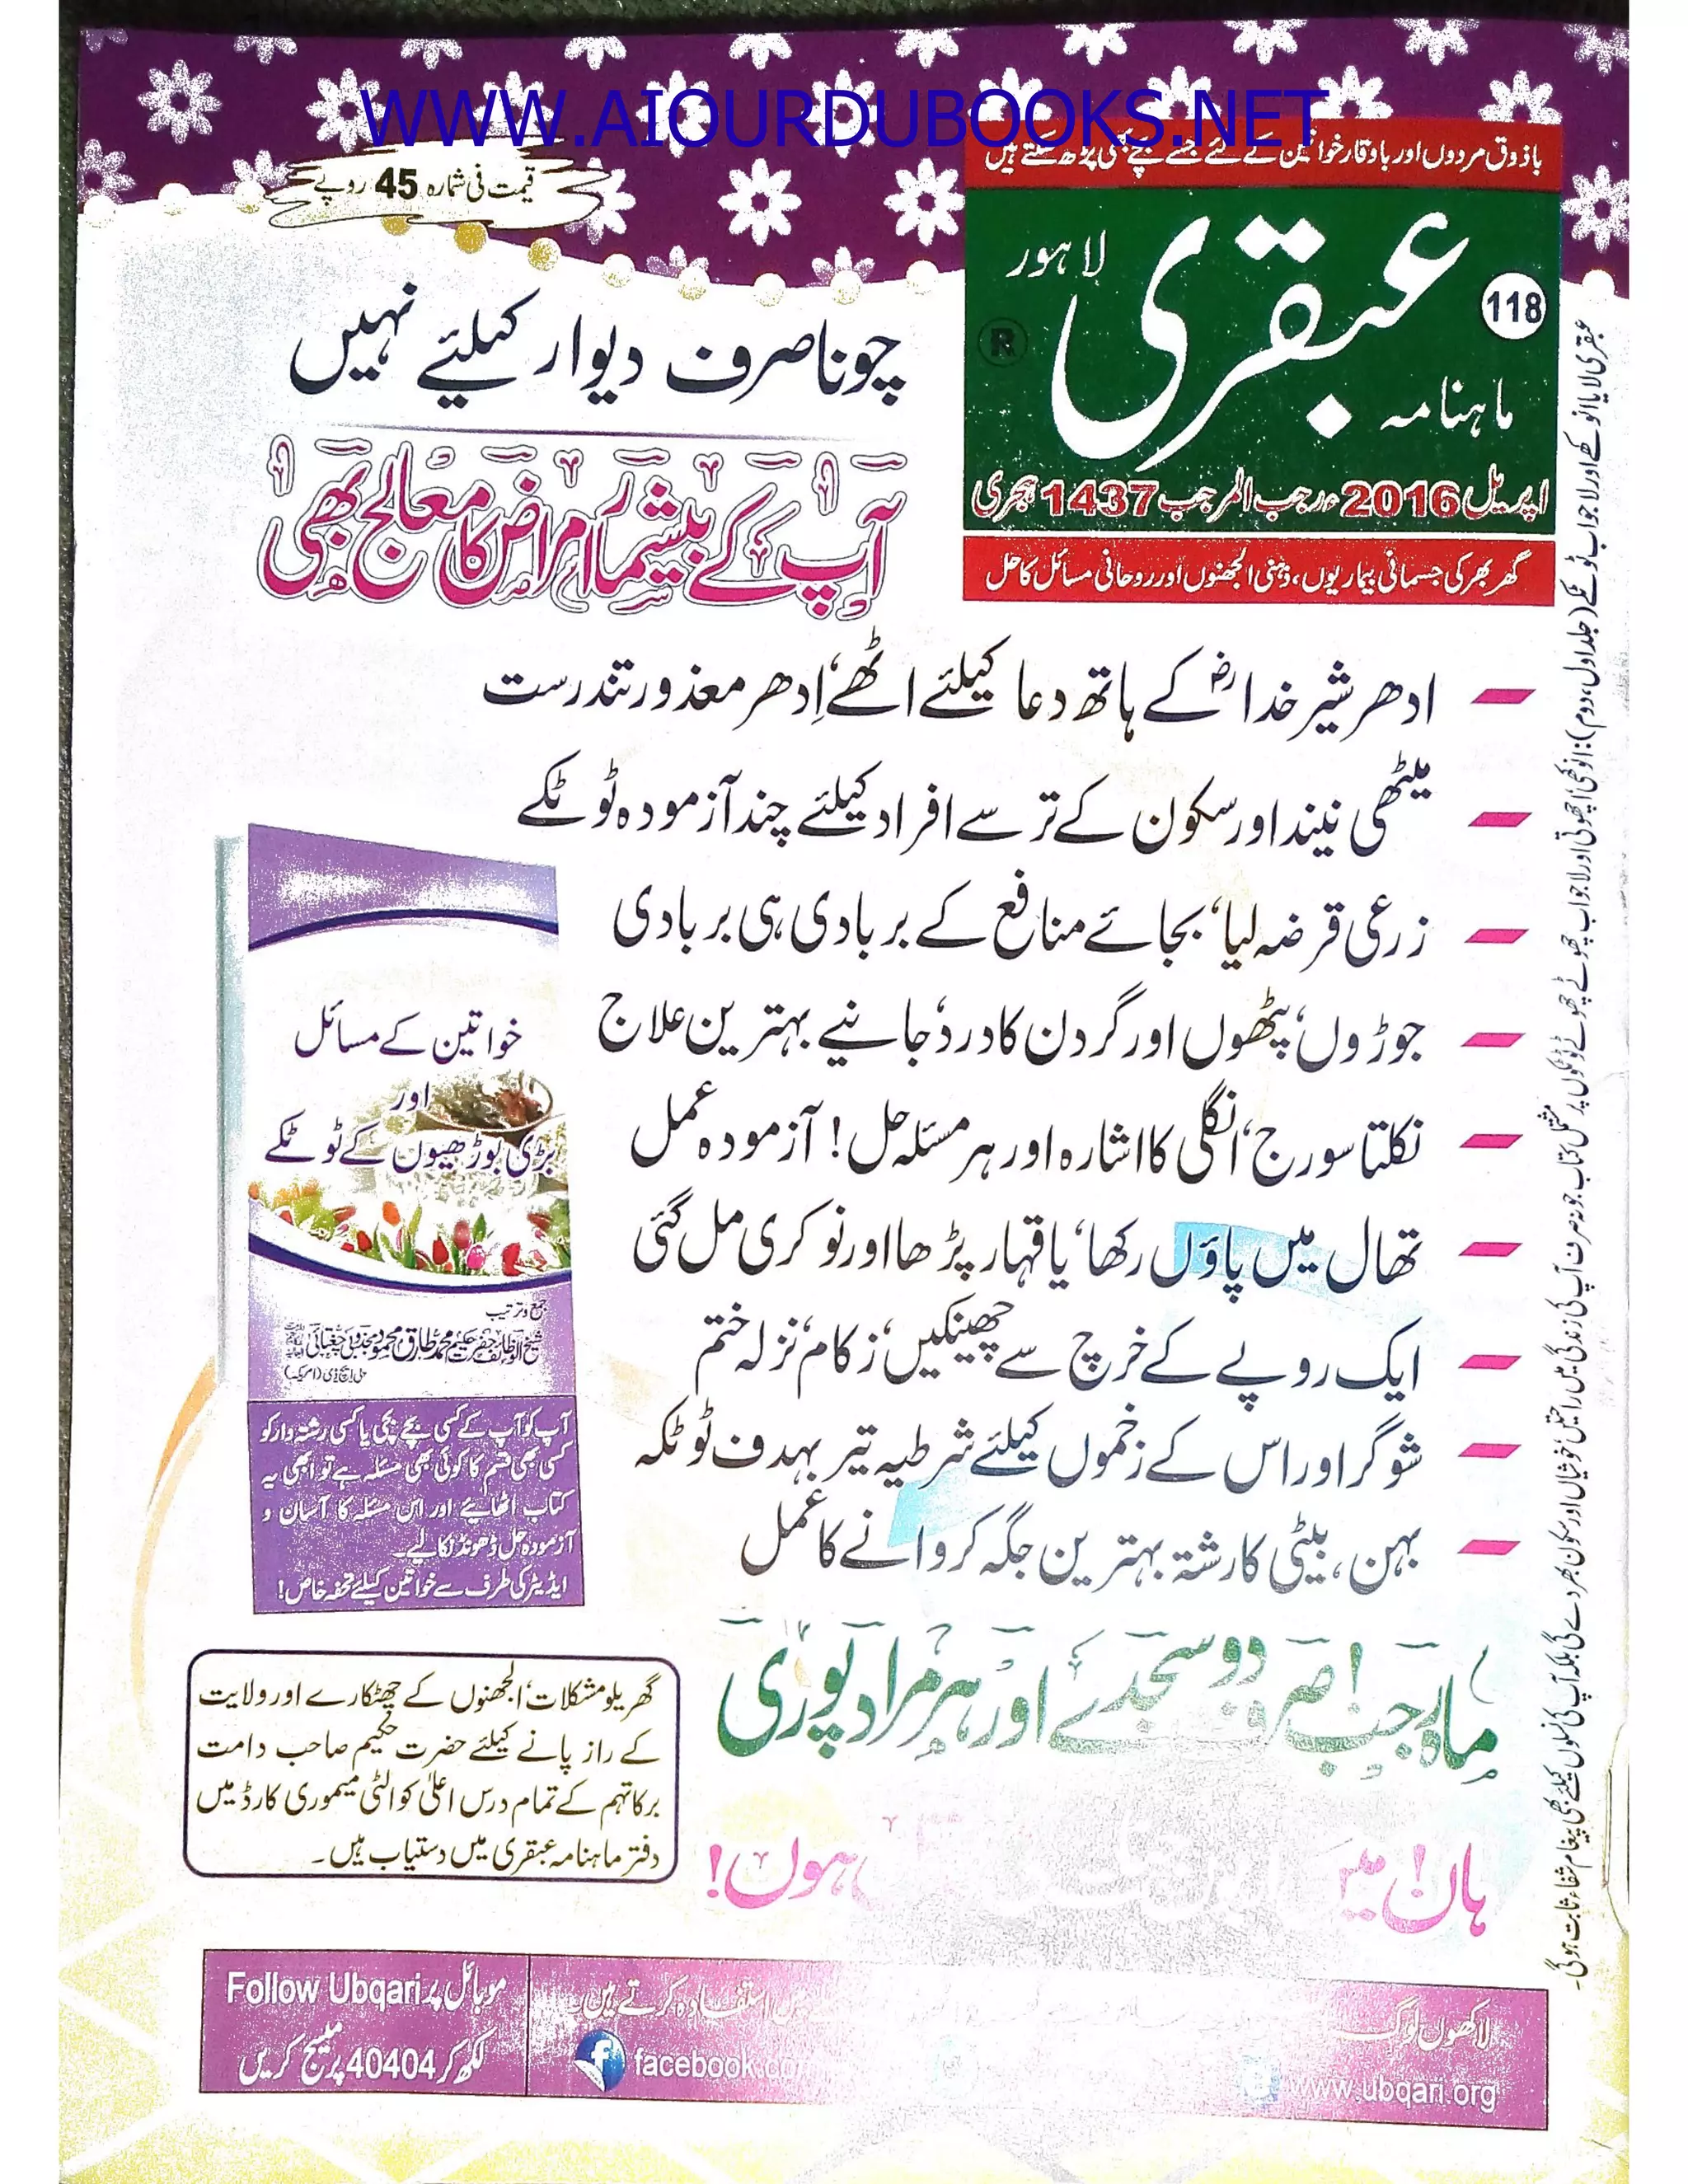 WWW.AIOURDUBOOKS.NET
باذوق مردوں اور باوقار خواتین کے لئے جسے بچے بھی پڑھ سکتے ہیں
قیمت فی شمارہ 45 روپے
لاہور
عبقری
118
ماہنامہ
R
اپریل 2016ء رجب المرجب 1437 ہجری
گھر بھر کی جسمانی بیماریوں، ذہنی الجھنوں اور روحانی مسائل کا حل
چونا صرف دیوار کیلئے نہیں
آپ کے بیشمار امراض کا معالج بھی
ادھر شیر خداؓ کے ہاتھ دعا کیلئے اٹھے، اِدھر معذور تندرست
میٹھی نیند اور سکون کے ترسے افراد کیلئے چند آزمودہ ٹوٹکے
زرعی قرضہ لیا، بجائے منافع کے بربادی ہی بربادی
جوڑوں، پٹھوں اور گردن کا درد، جانیے بہترین علاج
نکلتا سورج، انگلی کا اشارہ اور ہر مسئلہ حل! آزمودہ عمل
تھال میں پاؤں رکھا، یاقہار پڑھا اور نوکری مل گئی
ایک روپے کے خرچ سے چھینکیں، زکام، نزلہ ختم
شوگر اور اس کے زخموں کیلئے شرطیہ تیر بہدف ٹوٹکہ
بہن، بیٹی کا رشتہ بہترین جگہ کروانے کا عمل
ماہ رجب! صرف دو سجدے اور ہر مراد پوری
ہاں! میں
ہوں!
خواتین کے مسائل
اور
بڑی بوڑھیوں کے ٹوٹکے
جمع وترتیب
شیخ الوظائف حضرت حکیم محمد طارق محمود مجذوبی چغتائی
پی ایچ ڈی (امریکہ)
آپ کو آپ کے کسی بچے بچی یا کسی رشتہ دار کو
کسی بھی قسم کا کوئی بھی مسئلہ ہے تو ابھی یہ
کتاب اٹھائیے اور اس مسئلہ کا آسان و
آزمودہ حل ڈھونڈ نکالیے۔
ایڈیٹر کی طرف سے خواتین کیلئے تحفہ خاص!
گھریلو مشکلات، الجھنوں کے چھٹکارے اور ولایت
کے راز پانے کیلئے حضرت حکیم صاحب دامت
برکاتہم کے تمام درس اعلیٰ کوالٹی میموری کارڈ میں
دفتر ماہنامہ عبقری میں دستیاب ہیں۔
عبقری لایا انوکھے اور لاجواب ٹوٹکے (جلد اول، دوم): انوکھی اچھوتی اور لاجواب چھوٹے چھوٹے ٹوٹکوں پر مشتمل کتاب جو نہ صرف آپ کی زندگی میں راحتیں خوشیاں اور سکون بھر دے گی بلکہ آپ کی نسلوں کیلئے بھی پیغام شفاء ثابت ہوگی۔
موبائل پر Follow Ubqari
لکھ کر 40404 پر میسج کریں
لاکھوں لوگ
استفادہ کرتے ہیں۔
facebook.co
www.ubqari.org